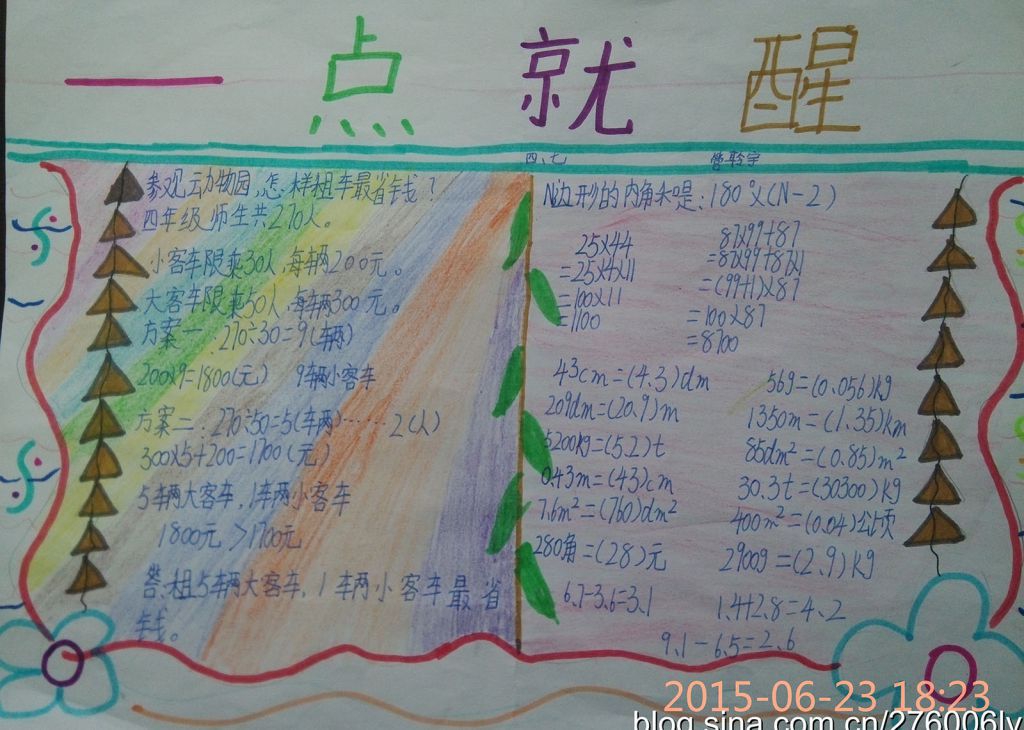 一点就醒
四、七
参观动物园,怎样租车最省钱?
四年级师生共270人。
小客车限乘30人,每辆200元。
大客车限乘50人,每辆300元。
方案一:270÷30=9(辆)
200×9=1800(元) 9辆小客车
方案二:270÷50=5(车辆)……2(人)
300×5+200=1700(元)
5车辆大客车,1车辆小客车
1800元>1700元
答:租5车辆大客车,1车辆小客车最省
钱。
N边形的内角和是:180°×(N-2)
25×44
=25×4×11
=100×11
=1100
87×99+87
=87×99+87×1
=(99+1)×87
=100×87
=8700
43cm=(4.3)dm
569=(0.056)kg
209dm=(20.9)m
1350m=(1.35)km
5200kg=(5.2)t
85dm²=(0.85)m²
0.43m=(43)cm
30.3t=(30300)kg
7.6m²=(760)dm²
400m²=(0.04)公顷
280角=(28)元
2900g=(2.9)kg
6.7-3.6=3.1
1.4+2.8=4.2
9.1-6.5=2.6
2015-06-23 18:23
blog.sina.com.cn/276006ly